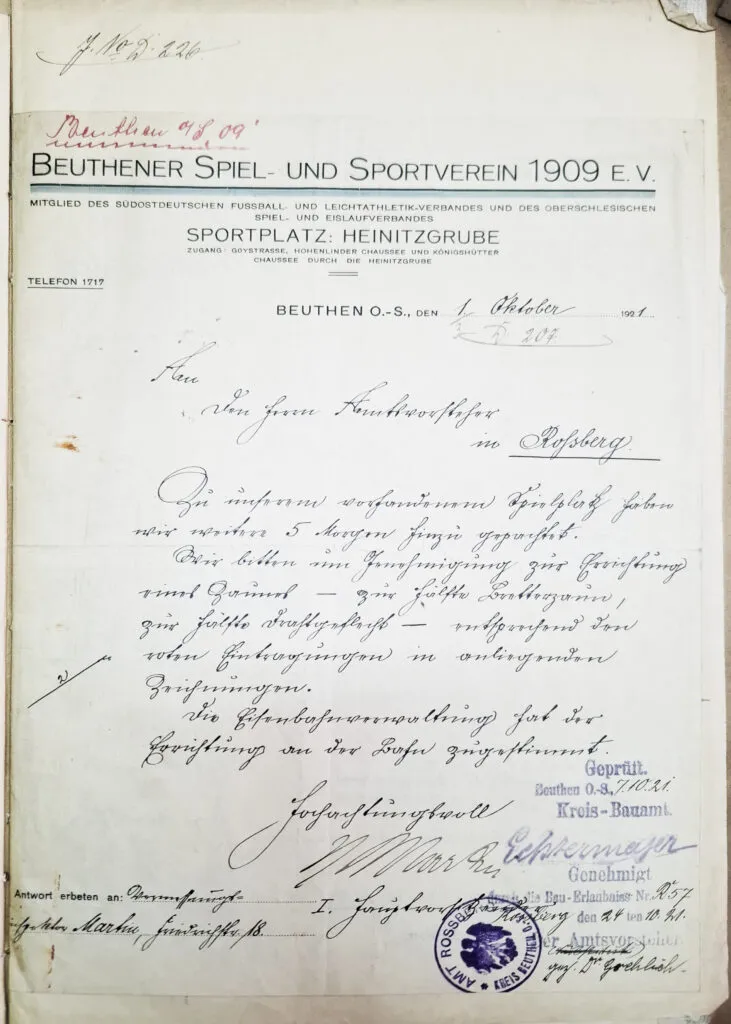 J. No D. 226
Beuthen o/S 09
BEUTHENER SPIEL- UND SPORTVEREIN 1909 E. V.
MITGLIED DES SÜDOSTDEUTSCHEN FUSSBALL- UND LEICHTATHLETIK-VERBANDES UND DES OBERSCHLESISCHEN
SPIEL- UND EISLAUFVERBANDES
SPORTPLATZ: HEINITZGRUBE
ZUGANG: GOYSTRASSE, HOHENLINDER CHAUSSEE UND KÖNIGSHÜTTER
CHAUSSEE DURCH DIE HEINITZGRUBE
TELEFON 1717
BEUTHEN O.-S., DEN 1. Oktober 1921
207
An
den Herrn Amtsvorsteher
in Rossberg.
Zu unserem vorhandenem Spielplatz haben
wir weitere 5 Morgen hinzu gepachtet.
Wir bitten um Genehmigung zur Errichtung
eines Zaunes — zur Hälfte Bretterzaun,
zur Hälfte Drahtgeflecht — entsprechend den
roten Eintragungen in anliegenden
Zeichnungen.
2
Die Eisenbahnverwaltung hat der
Errichtung an der Bahn zugestimmt.
Geprüft.
Beuthen O.-S., 7.10.21.
Kreis-Bauamt.
Hochachtungsvoll
Martin
I. Hauptvorsitzender
Genehmigt
durch die Bau-Erlaubniss Nr. R 57
Rossberg den 24 ten 10. 21.
Der Amtsvorsteher
gez. Dr
Antwort erbeten an: Vermessungs-
inspektor Martin, Friedrichstr. 18.
AMT ROSSBERG
KREIS BEUTHEN O.S.